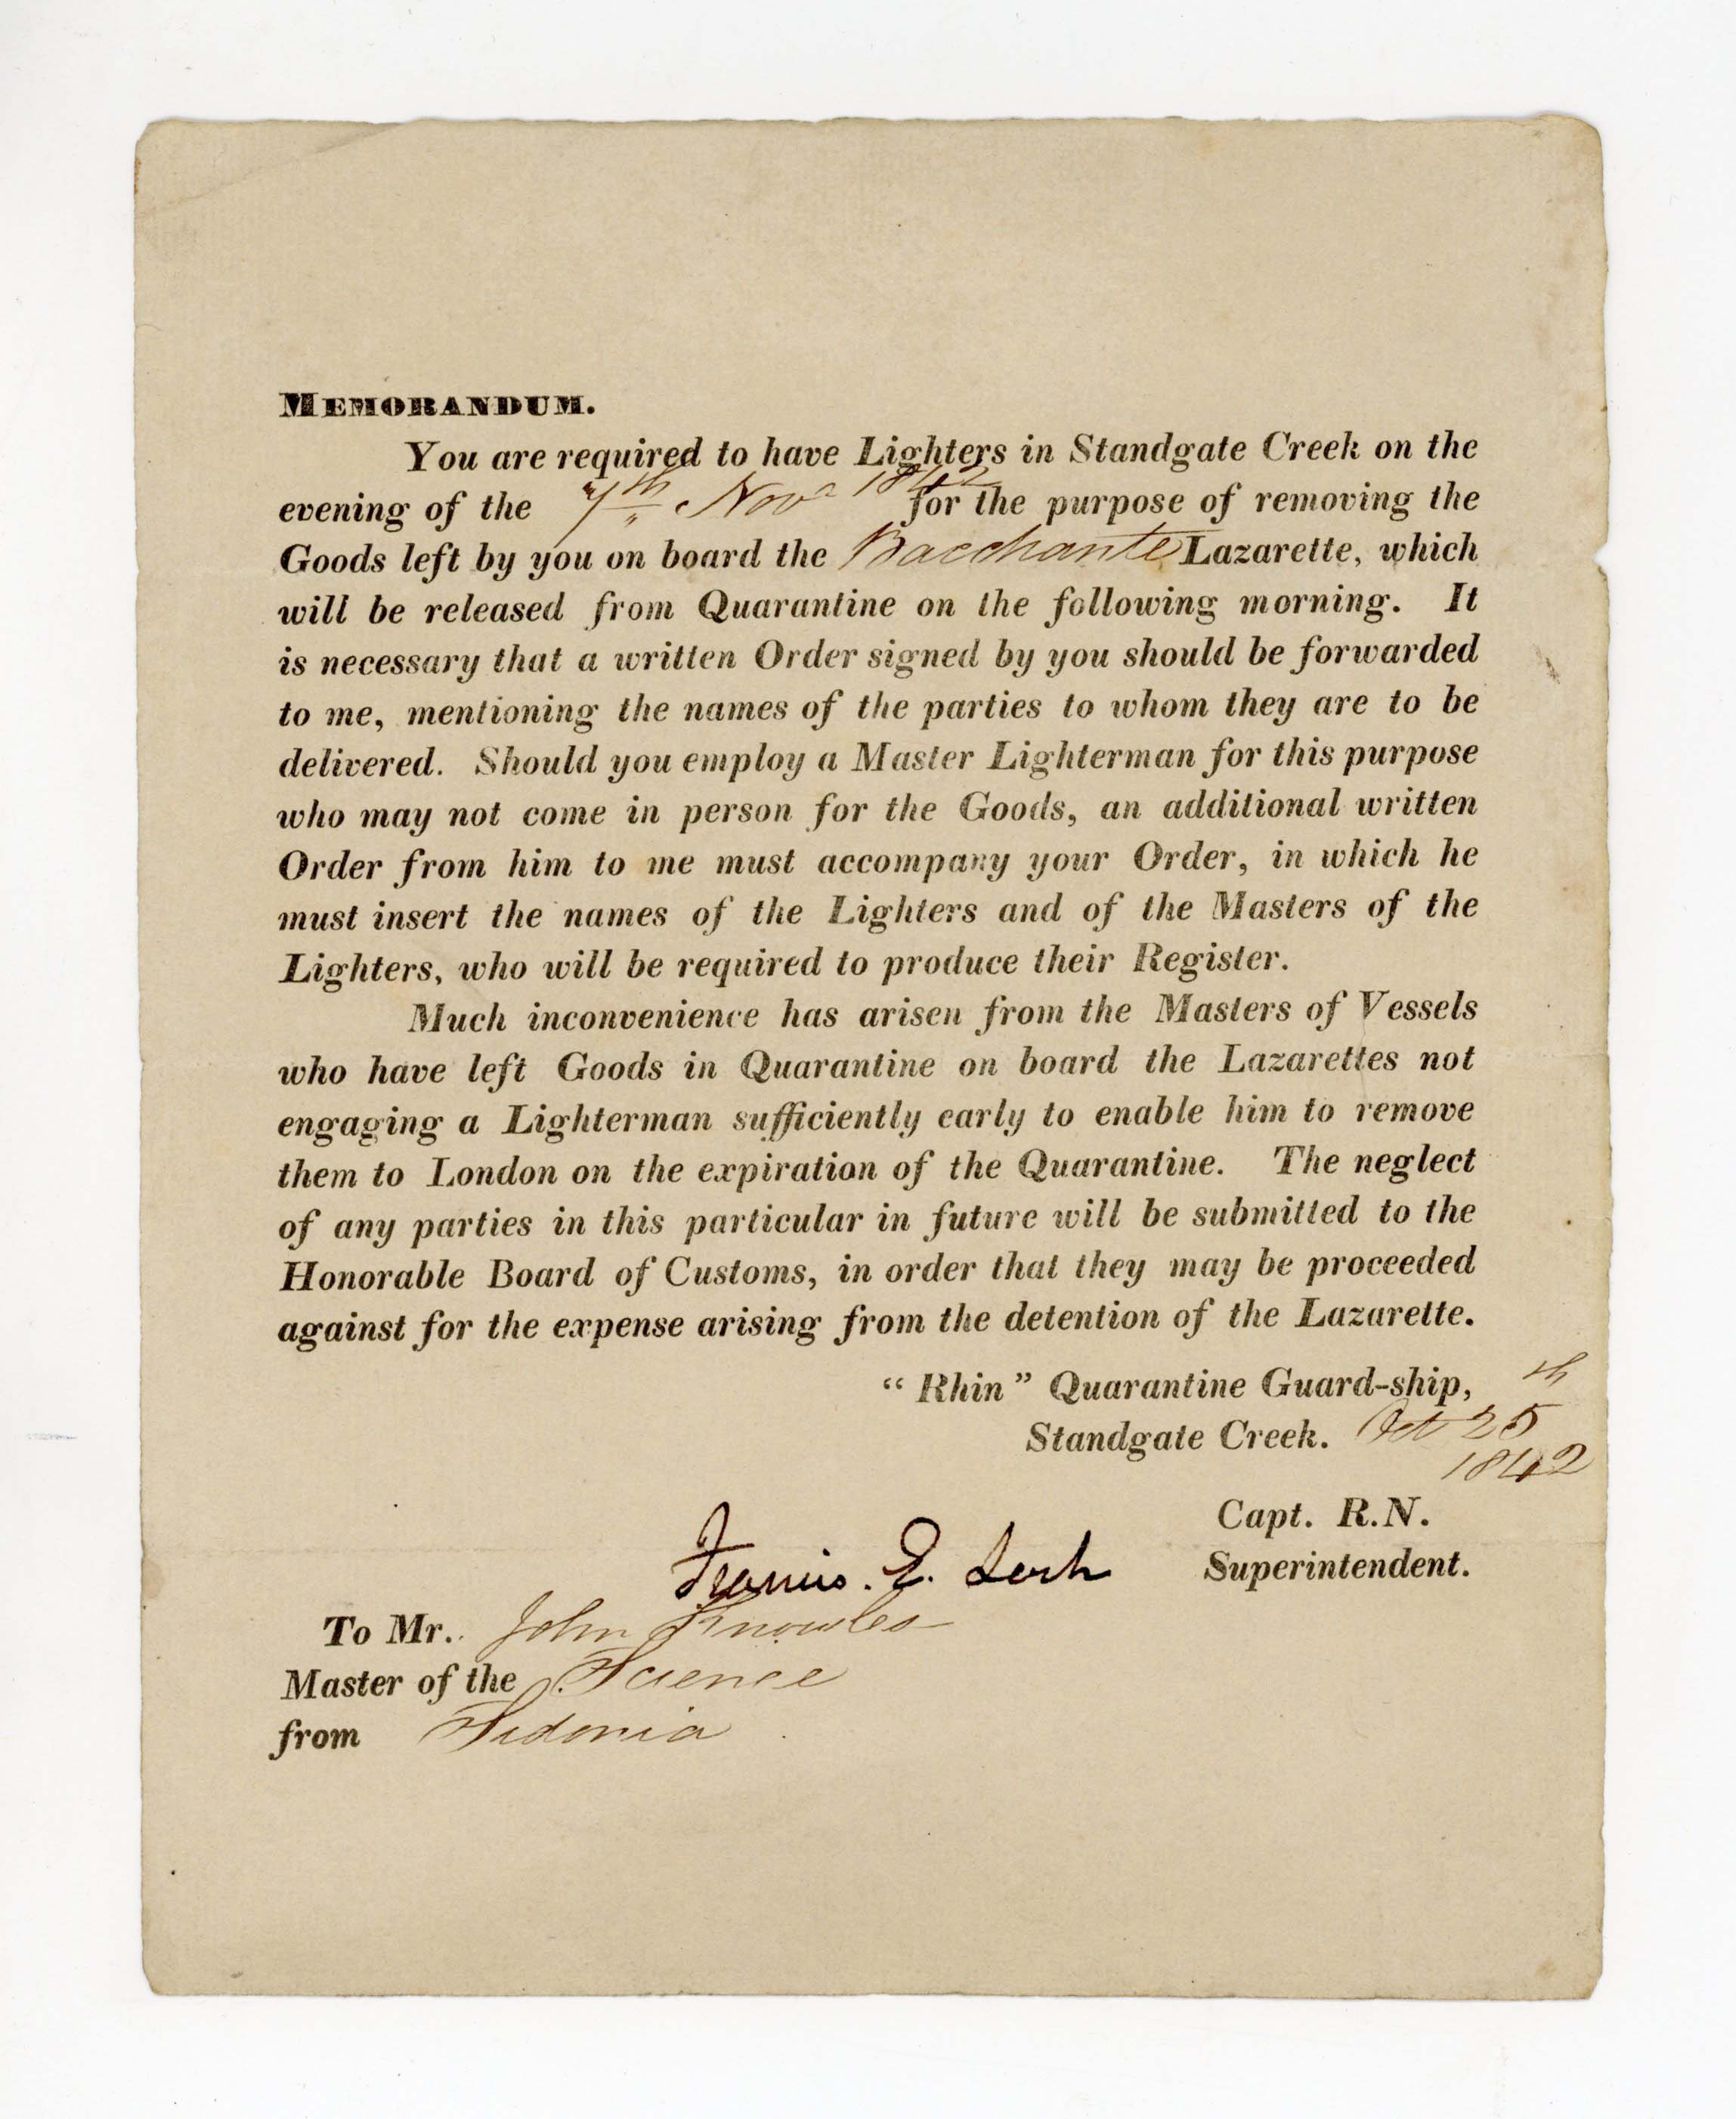 MEMORANDUM.
You are required to have Lighters in Standgate Creek on the
evening of the 7th Novr 1842 for the purpose of removing the
Goods left by you on board the Bacchante Lazarette, which
will be released from Quarantine on the following morning. It
is necessary that a written Order signed by you should be forwarded
to me, mentioning the names of the parties to whom they are to be
delivered. Should you employ a Master Lighterman for this purpose
who may not come in person for the Goods, an additional written
Order from him to me must accompany your Order, in which he
must insert the names of the Lighters and of the Masters of the
Lighters, who will be required to produce their Register.
Much inconvenience has arisen from the Masters of Vessels
who have left Goods in Quarantine on board the Lazarettes not
engaging a Lighterman sufficiently early to enable him to remove
them to London on the expiration of the Quarantine. The neglect
of any parties in this particular in future will be submitted to the
Honorable Board of Customs, in order that they may be proceeded
against for the expense arising from the detention of the Lazarette.
“Rhin” Quarantine Guard-ship,
Standgate Creek. Oct 25th
1842
Capt. R.N.
Francis. E. Loch Superintendent.
To Mr. John Knowles
Master of the Science
from Sidonia